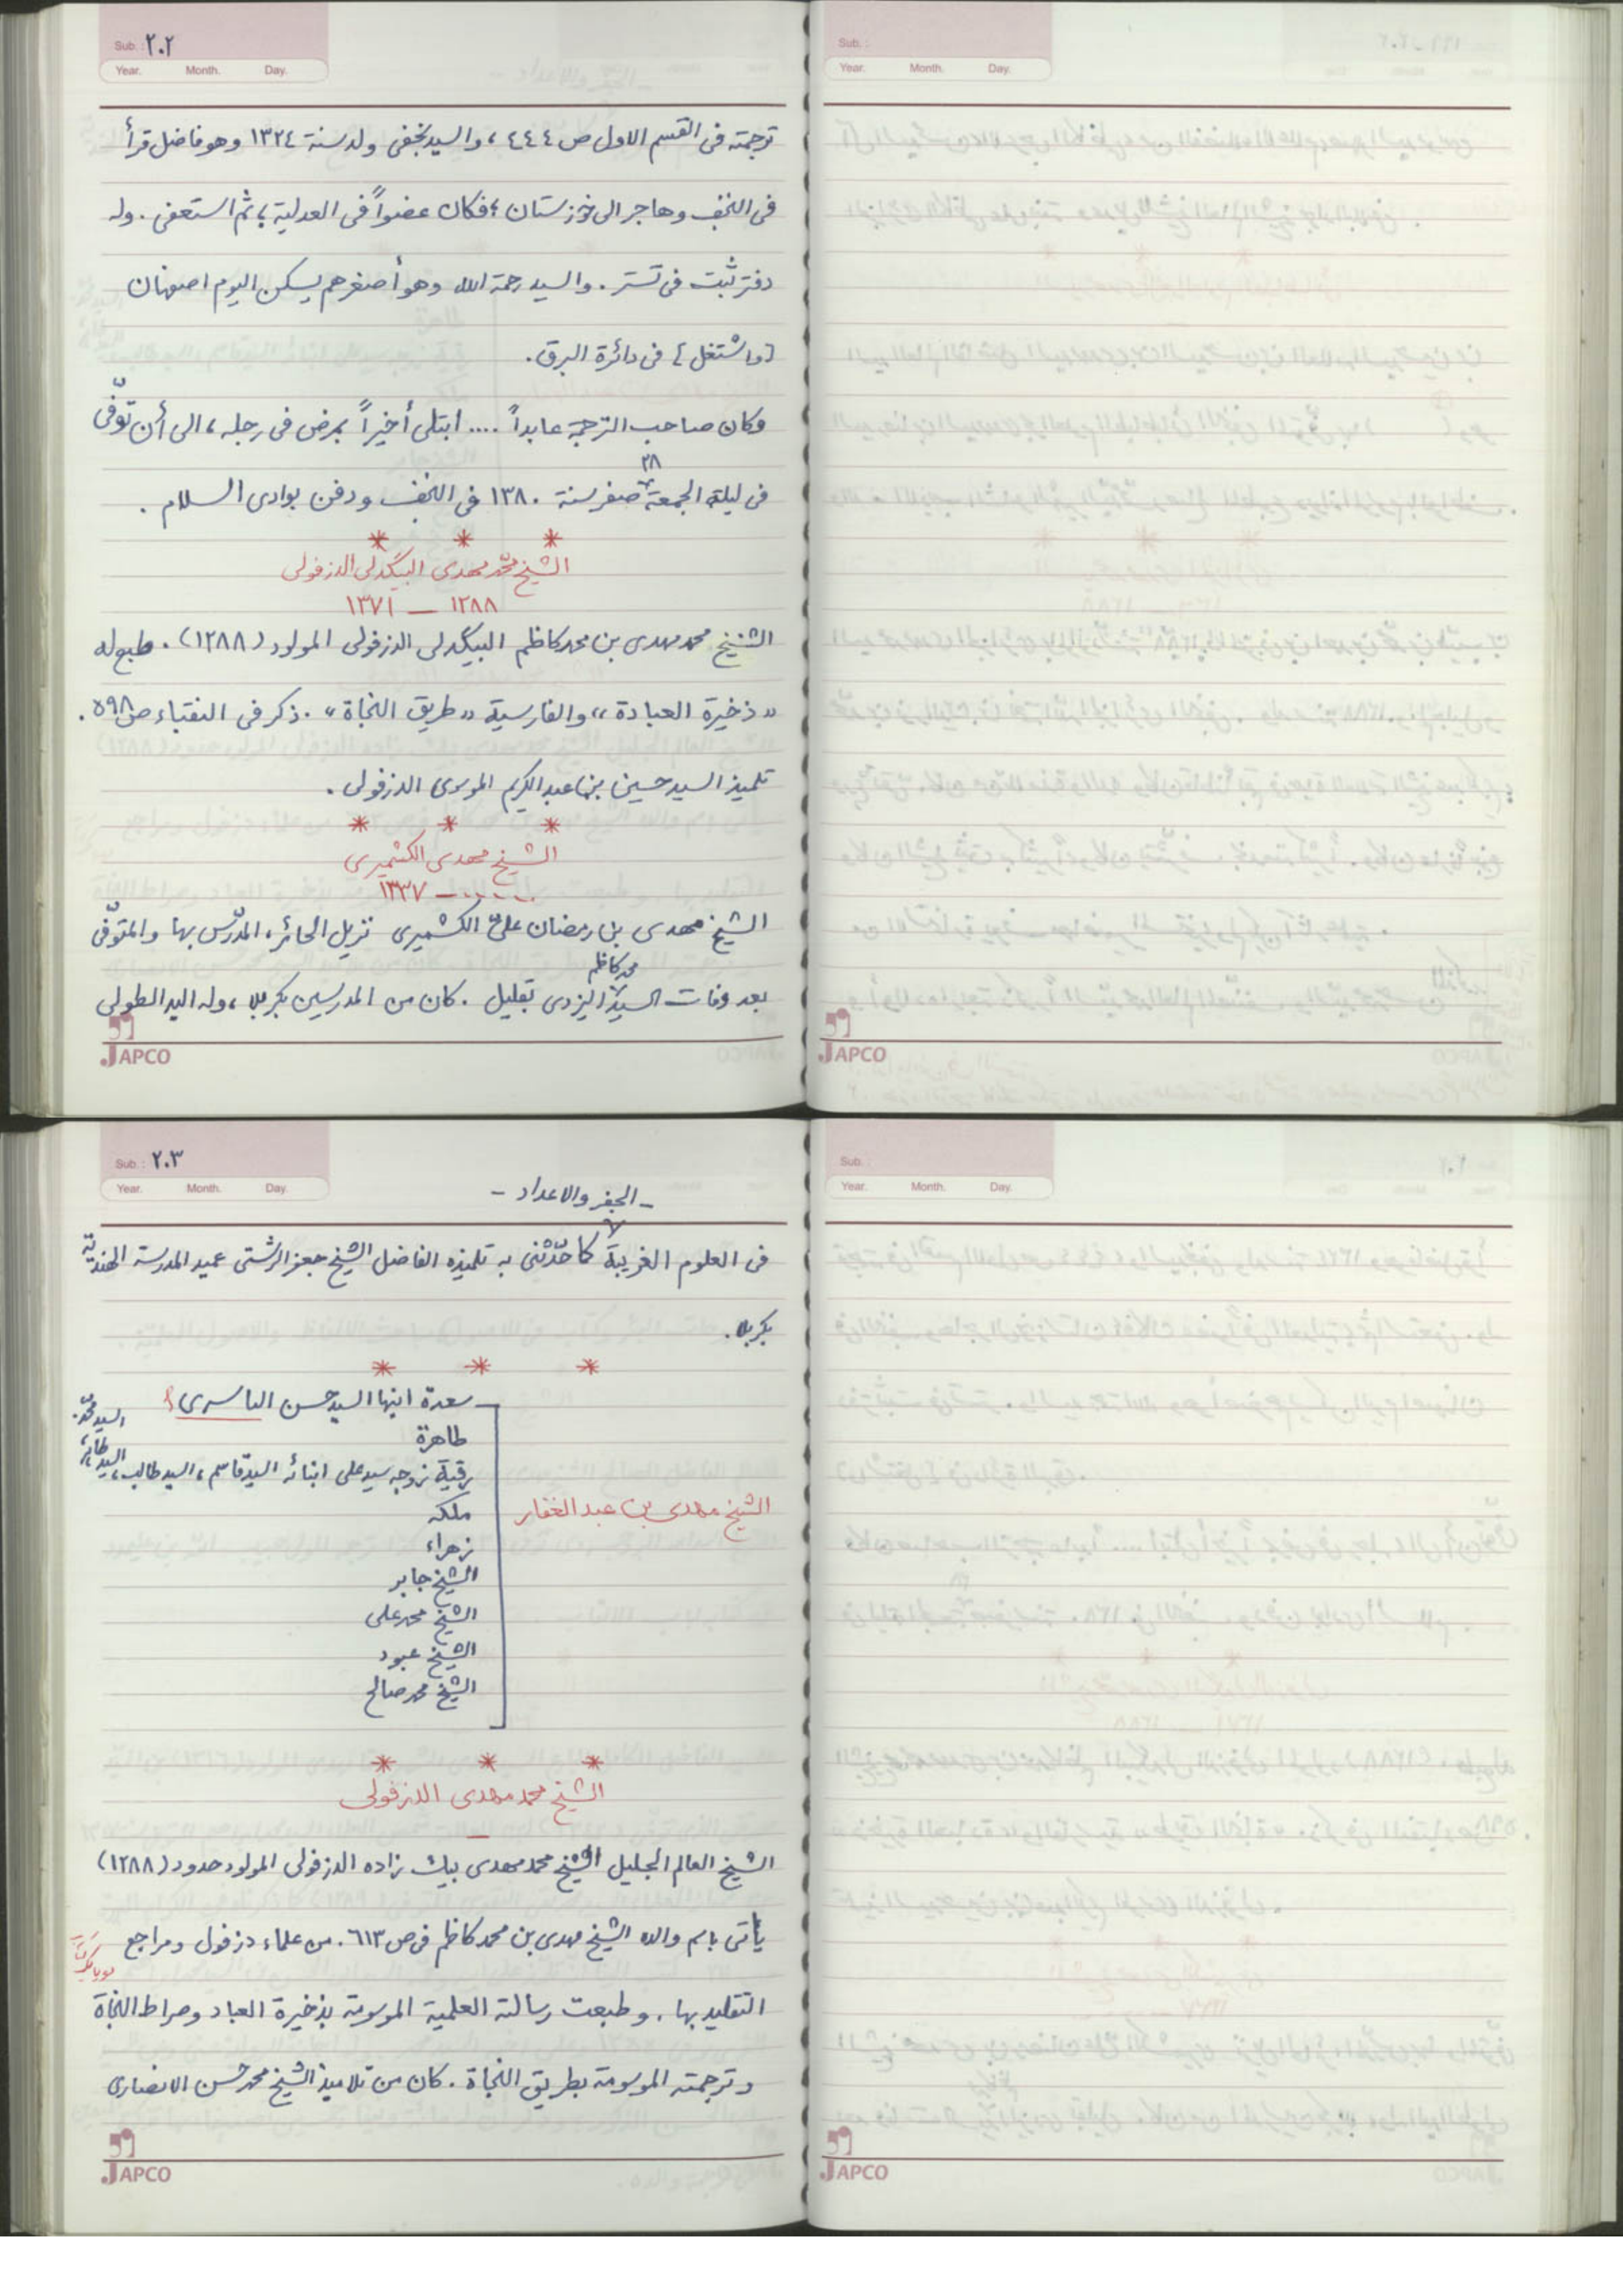 Sub. : ٢٠٢
Year. Month. Day.
ترجمته فى القسم الاول ص ٤٤٤ ، والسيد نجفى ولد سنة ١٣٢٤ وهو فاضل قرأ
فى النجف وهاجر الى خوزستان ؛ فكان عضواً فى العدلية ، ثم استعفى . وله
دفتر ثبت فى تستر . والسيد رحمة الله وهو أصغرهم يسكن اليوم اصفهان
[واشتغل] فى دائرة البرق.
وكان صاحب الترجمة عابداً .... ابتلى أخيراً بمرض فى رجله ، الى أن توّفى
٢٨
فى ليلة الجمعة صفر سنة ١٣٨٠ فى النجف ودفن بوادى السلام .
* * *
الشيخ محمّد مهدى البيگدلى الدزفولى
١٢٨٨ — ١٣٧١
الشيخ محمد مهدى بن محمد كاظم البيگدلى الدزفولى المولود (١٢٨٨) . طبع له
«ذخيرة العبادة» والفارسية «طريق النجاة» . ذكر فى النقباء ص ٥٩٨ .
تلميذ السيد حسين بن عبد الكريم الموسوى الدزفولى .
* * *
الشيخ مهدى الكشميرى
..... — ١٣٣٧
الشيخ مهدى بن رمضان علىّ الكشميرى نزيل الحائر ، المدّرس بها والمتوّفى
محمد كاظم
بعد وفات السيد اليزدى بقليل . كان من المدرسين بكربلا ، وله اليد الطولى
JAPCO
Sub. :
Year. Month. Day.
JAPCO
Sub. : ٢٠٣
Year. Month. Day.
- الجفر والاعداد -
فى العلوم الغريبة كما حدّثنى به تلميذه الفاضل الشيخ جعفر الرشتى عميد المدرسة الهندّية
بكربلا .
* * *
سعدة ابنها السيد حسن الياسرى ؟
طاهرة
رقية زوجه سيد على ابنائه السيد قاسم ، السيد طالب ،
السيد محمّد.
ملكه
زهراء
الشيخ مهدى بن عبد الغفار
الشيخ جابر
الشيخ محمد على
الشيخ عبود
الشيخ محمد صالح
* * *
الشيخ محمد مهدى الدزفولى
—
الشيخ العالم الجليل الشيخ محمد مهدى بيك زاده الدزفولى المولود حدود (١٢٨٨)
يأتى باسم والده الشيخ مهدى بن محمد كاظم فى ص ٦١٣ . من علماء دزفول ومراجع
التقليد بها . وطبعت رسالته العلمية الموسومة بذخيرة العباد وصراط النجاة
وترجمته الموسومة بطريق النجاة . كان من تلاميذ الشيخ محمد حسن الانصارى
JAPCO
Sub. :
Year. Month. Day.
JAPCO